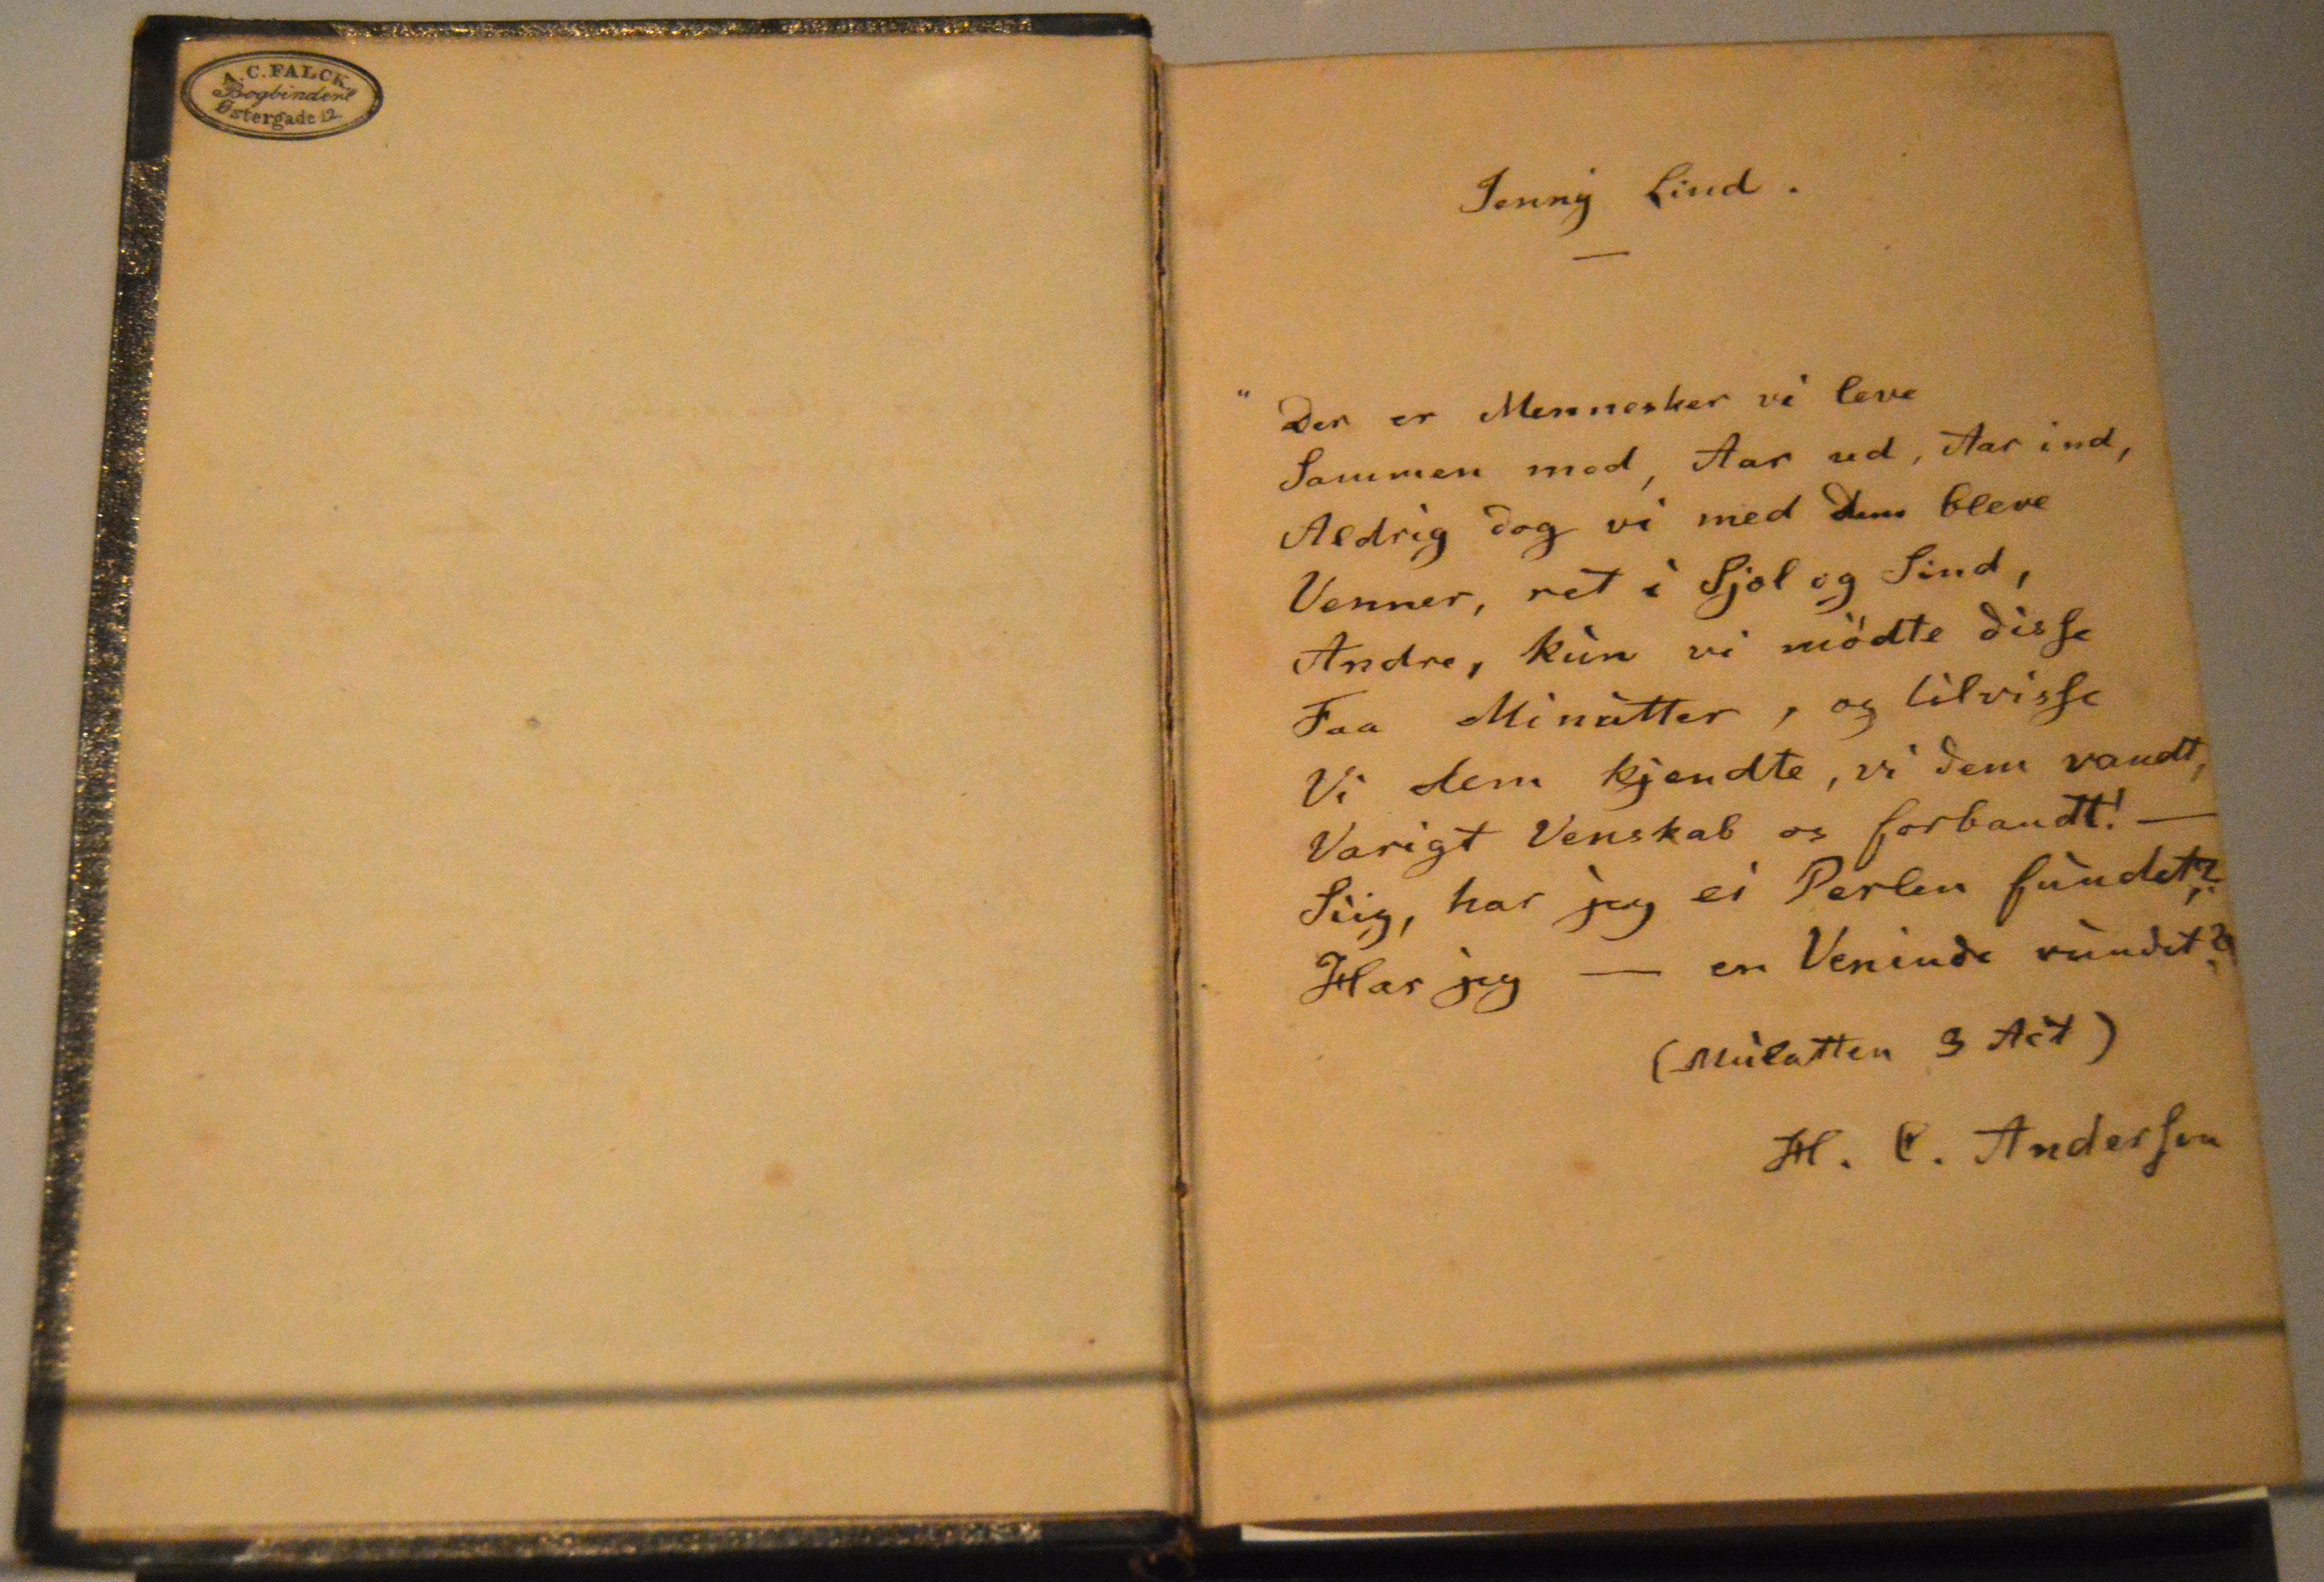 A. C. FALCK.
Bogbinderi
Østergade 12.
Jenny Lind.
—
"Der er Mennesker vi leve
Sammen med, Aar ud, Aar ind,
Aldrig dog vi med dem bleve
Venner, ret i Sjæl og Sind,
Andre, kun vi mödte disse
Faa Minutter, og tilvisse
Vi dem kjendte, vi dem vandt,
Varigt Venskab os forbandt! —
Siig, har jeg ei Perlen fundet?
Har jeg — en Veninde vundet?
(Mulatten 3 Act)
H. C. Andersen